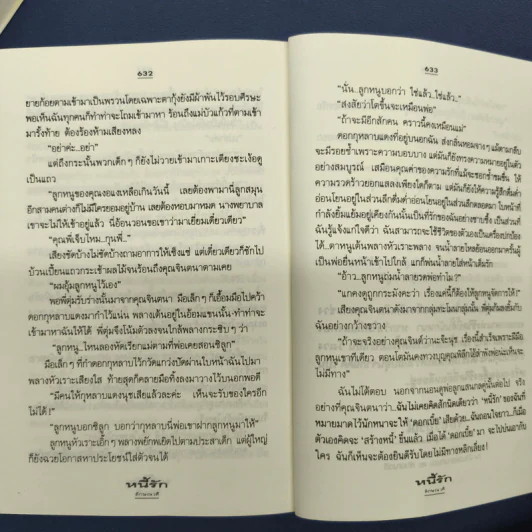 632
ยายก้อยตามเข้ามาเป็นพรวนโดยเฉพาะตากุ้งยังมีผ้าพันไว้รอบศีรษะ
พอเห็นฉันทุกคนก็ทำท่าจะโถมเข้ามาหา ร้อนถึงแม่บัวแก้วที่ตามเข้า
มารั้งท้าย ต้องร้องห้ามเสียงหลง
“อย่าค่ะ..อย่า”
แต่ถึงกระนั้นพวกเด็กๆ ก็ยังไม่วายเข้ามาเกาะเตียงชะเง้อดู
เป็นแถว
“ลูกหนูของคุณงอแงเหลือเกินวันนี้ เลยต้องพามานี่ลูกสมุน
อีกสามคนต่างก็ไม่มีใครยอมอยู่บ้าน เลยต้องหอบมาหมด นางพยาบาล
เขาจะไม่ให้เข้าอยู่แล้ว นี่อ้อนวอนขอเขาว่ามาเยี่ยมเดี๋ยวเดียว”
“คุณพี่เจ็บไหม..กุนพี่..”
เสียงซัดบ้างไม่ซัดบ้างถามเข้าให้เซ็งแซ่ แต่เดี๋ยวเดียวก็ชักไป
ป้วนเปี้ยนแถวกระเช้าผลไม้จนร้อนถึงคุณจินตนาตามเคย
“ผมอุ้มลูกหนูไว้เอง”
พอพี่ตุ่มรับร่างนั้นมาจากคุณจินตนา มือเล็กๆ ก็เอื้อมมือไปคว้า
ดอกกุหลาบแดงมากำไว้แน่น พลางเต้นอยู่ในอ้อมแขนนั้น-ทำท่าจะ
เข้ามาหาฉันให้ได้ พี่ตุ่มจึงโน้มตัวลงจนใกล้พลางกระซิบๆ ว่า
“ลูกหนู...ไหนลองหัดเรียกแม่ตามที่พ่อเคยสอนซิลูก”
มือเล็กๆ ที่กำดอกกุหลาบไว้กวัดแกว่งปัดผ่านใบหน้าฉันไปมา
พลางหัวเราะเสียงใส ท้ายสุดก็คลายมือทิ้งลงมาวางไว้บนอกพอดี
“มีคนให้กุหลาบแดงนุชเสียแล้วละค่ะ เห็นจะรับของใครอีก
ไม่ได้!”
“ลูกหนูบอกซิลูก บอกว่ากุหลาบนี่พ่อเขาฝากลูกหนูมาให้”
ลูกหนูหัวเราะเอิ๊กๆ พลางพยักพเยิดไปตามประสาเด็ก แต่ผู้ใหญ่
ก็ยังฉวยโอกาสหาประโยชน์ใส่ตัวจนได้
หนี้รัก
633
“นั่น..ลูกหนูบอกว่า ใช่แล้ว..ใช่แล้ว..”
“สงสัยว่าโตขึ้นจะเหมือนพ่อ”
“ถ้าจะมีอีกสักคน คราวนี้คงเหมือนแม่”
ดอกกุหลาบแดงที่อยู่บนอกฉัน ส่งกลิ่นหอมจางๆ
จะมีรอยช้ำเพราะความบอบบาง แต่มันก็ยังทรงความหมายอยู่ในตัว
อย่างสมบูรณ์ เสมือนคุณค่าของความรักที่แม้จะชอกช้ำขมขื่น ให้
ความรวดร้าวยอกแสลงเพียงใดก็ตาม แต่มันก็ยังให้ความรู้สึกดื่มด่ำ
อ่อนโยนอยู่ในส่วนลึกดื่มด่ำอ่อนโยนอยู่ในส่วนลึกตลอดมา ใบหน้าที่
กำลังยิ้มแย้มอยู่เคียงกันนั้นเป็นที่รักของฉันอย่างซาบซึ้ง เป็นส่วนที่
ฉันรู้แจ้งแก่ใจดีว่า ฉันสามารถจะใช้ชีวิตของตัวเองเป็นเครื่องปกป้อง
ได้..ตาหนูเต้นพลางหัวเราะพลาง จนน้ำลายไหลย้อนออกมาครั้นผู้
เป็นพ่อยื่นหน้าเข้าไปใกล้ แกก็พ่นน้ำลายใส่หน้าเต็มรัก
“อ้าว..ลูกหนูถ่มน้ำลายรดพ่อทำไม?”
“แกคงดูถูกกระมังคะว่า เรื่องแค่นี้ก็ต้องให้ลูกหนูจัดการให้!”
เสียงคุณจินตนาดังมาจากกลุ่มทะโมนกลุ่มนั้น พี่ตุ่มก้มลงยิ้มกับ
ฉันอย่างกว้างขวาง
“ถ้าจะจริงอย่างคุณจินต์ว่านะจ๊ะนุช เรื่องนี้สำเร็จเพราะมีมือ
ลูกหนูเขาทีเดียว
ไม่มีทาง”
ฉันไม่ได้ตอบ
อย่างที่คุณจินตนาว่า.. ฉันไม่เคยคิดสักนิดเดียวว่า ‘หนี้รัก’ ของฉันที่
หมายมาดไว้นักหนาจะให้ ‘ดอกเบี้ย’ เสียด้วย..
ตัวเองคิดจะ ‘สร้างหนี้’ ขึ้นแล้ว เมื่อได้ ‘ดอกเบี้ย’ มา จะไปบ่นเอากับ
ใคร ฉันก็เห็นจะต้องยินดีรับโดยไม่มีทางหลีกเลี่ยง!
หนี้รัก